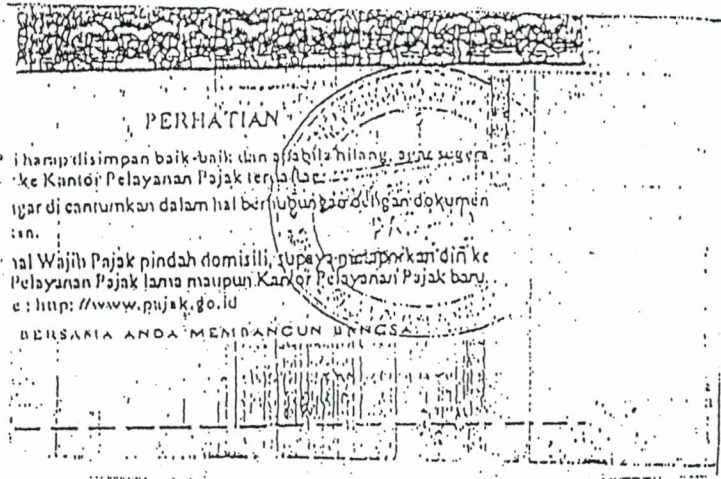 PERHATIAN
i harap disimpan baik-baik dan apabila hilang, agar segera
ke Kantor Pelayanan Pajak terdaftar.
agar di cantumkan dalam hal berhubungan dengan dokumen
an.
hal Wajib Pajak pindah domisili, supaya melaporkan diri ke
Pelayanan Pajak lama maupun Kantor Pelayanan Pajak baru.
e : http: //www.pajak.go.id
BERSAMA ANDA MEMBANGUN BANGSA